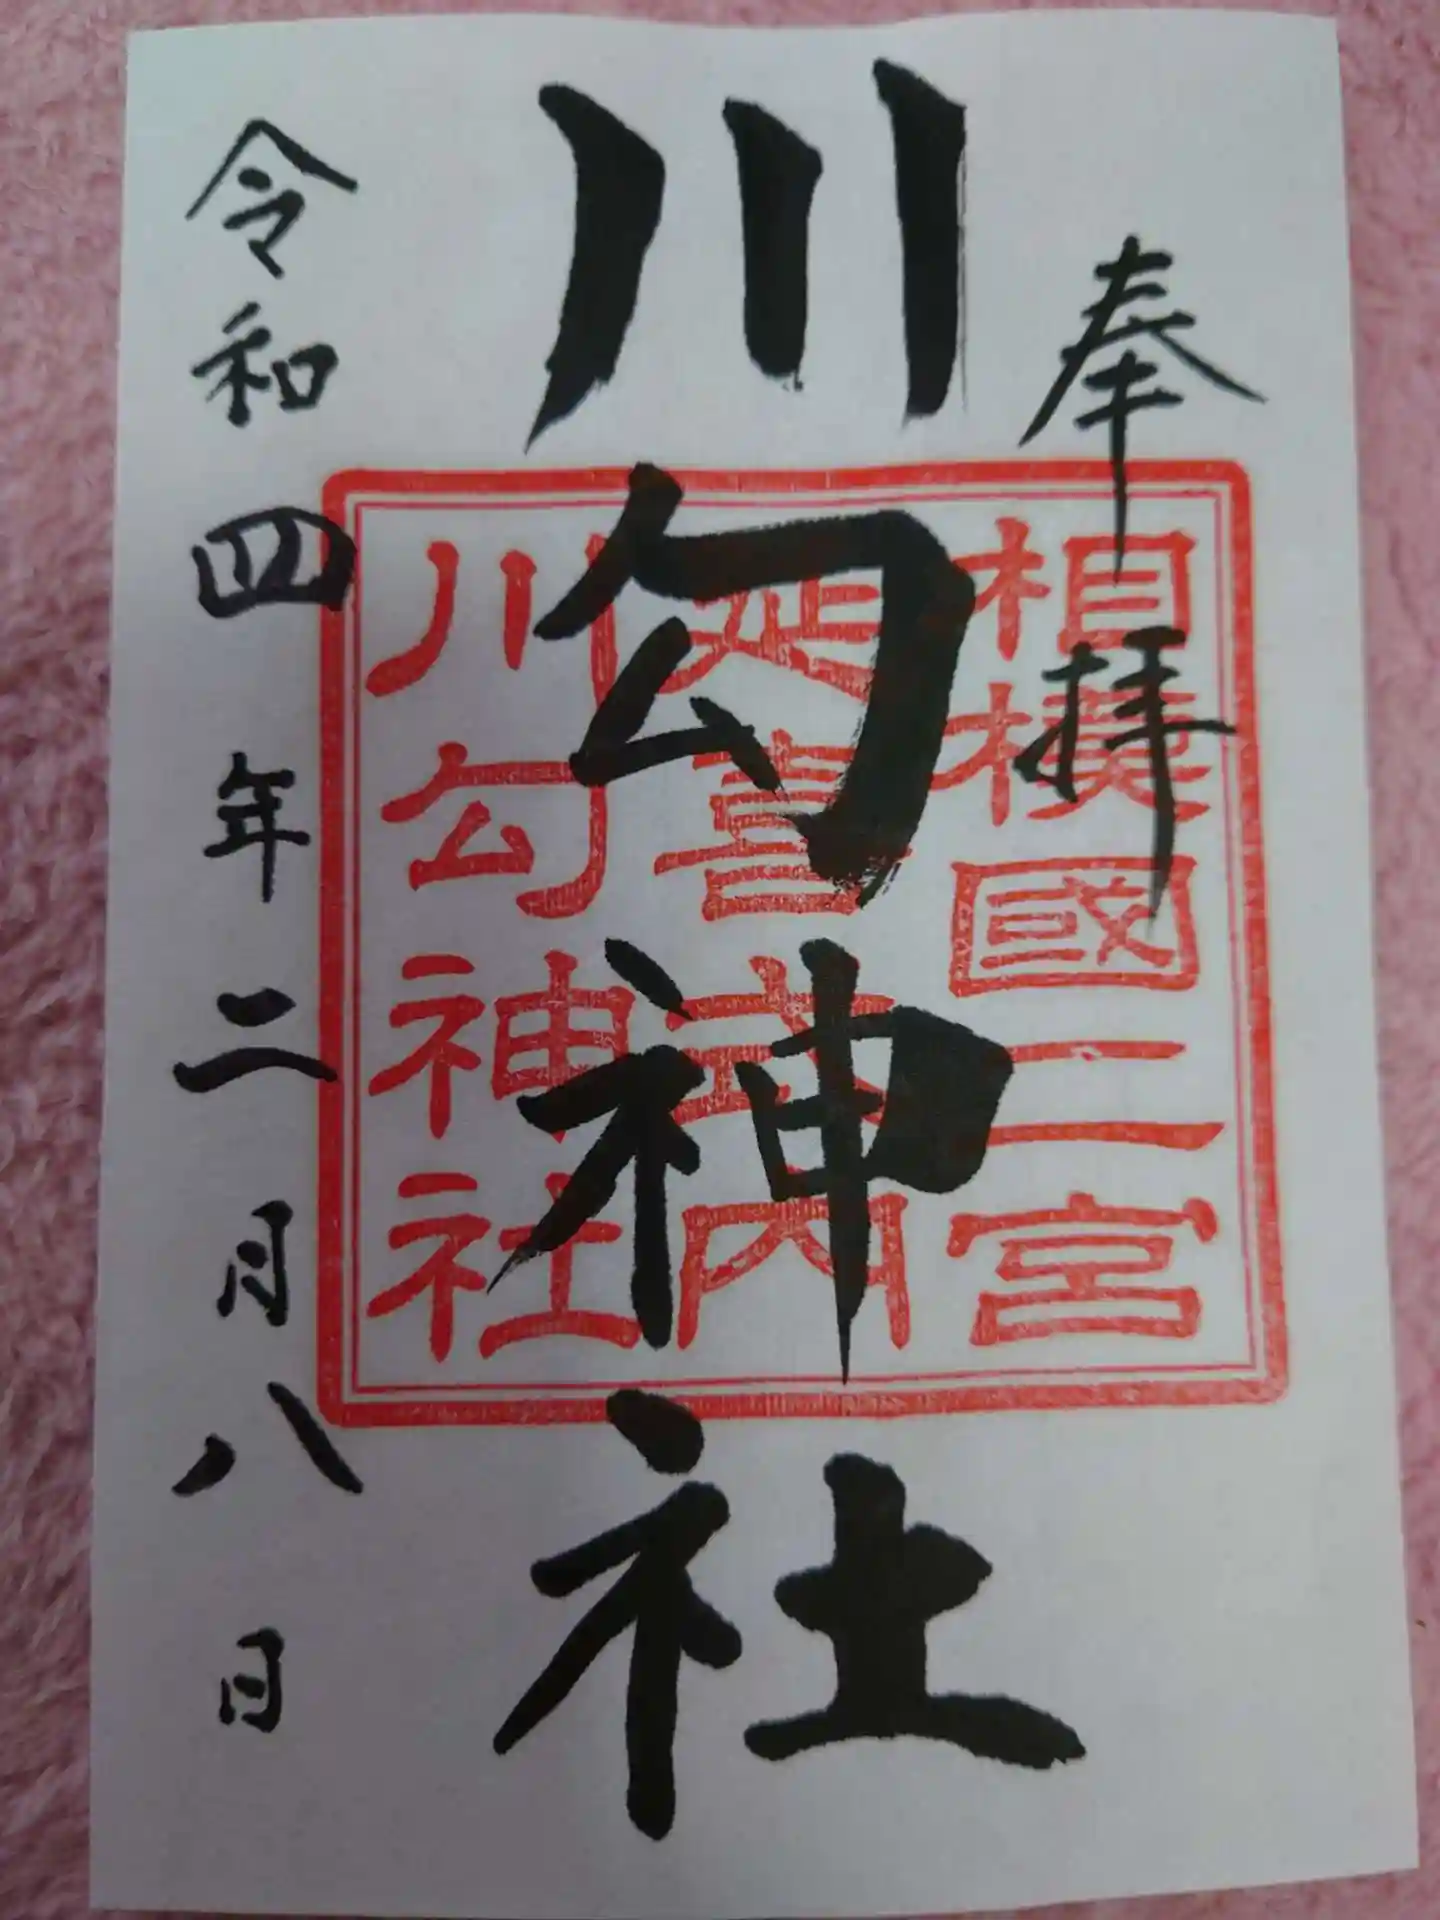 奉拝
川勾神社
令和四年二月八日
相模國二宮
延喜式内
川勾神社